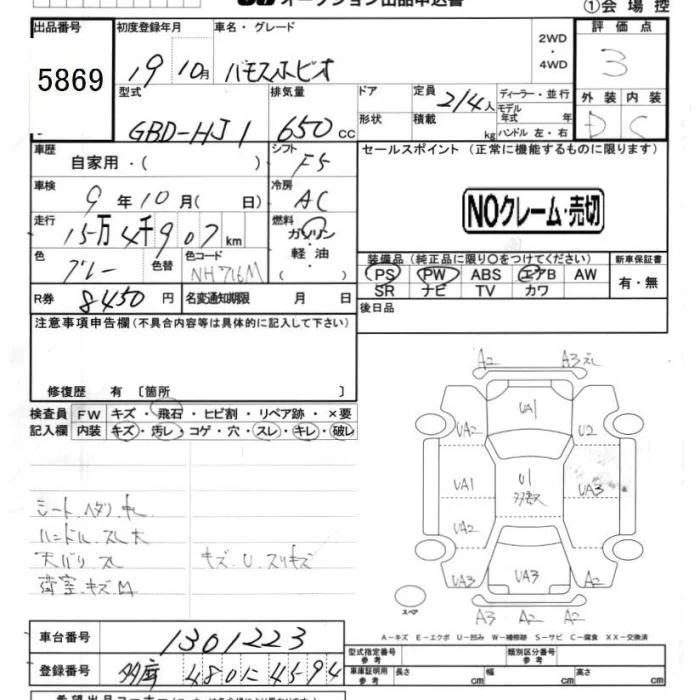 オークション出品申込書
①会場控
出品番号
5869
初度登録年月
19 10月
車名・グレード
バモスホビオ
2WD
・
4WD
評価点
3
型式
GBD-HJ1
排気量
650cc
ドア
形状
定員
2/4人
積載
kg
ディーラー・並行
モデル
年式 年
ハンドル 左・右
外装 内装
D C
車歴
自家用・( )
シフト
F5
セールスポイント (正常に機能するものに限ります)
車検
9年10月( 日)
冷房
AC
NOクレーム・売切
走行
15万4千907km
燃料
ガソリン
軽油
( )
色
グレー
色替
色コード
NH716M
装備品 (純正品に限り○をつけてください)
PS PW ABS エアB AW
SR ナビ TV カワ
新車保証書
有・無
R券
8450円
名変通知期限 月 日
後日品
注意事項申告欄 (不具合内容等は具体的に記入して下さい)
修復歴 有 〔箇所 〕
検査員
記入欄
FW キズ・飛石・ヒビ割・リペア跡・×要
内装 キズ・汚レ・コゲ・穴・スレ・キレ・破レ
シート
ハンドル スレ大
天バリ スレ
荷室 キズM
キズ U スリキズ
A2 A3
UA1
UA2 U2
UA1 U1 UA3
多数
UA2
UA3 UA3
A3 A2 A2
スペア
A-キズ E-エクボ U-凹み W-補修跡 S-サビ C-腐食 XX-交換済
車台番号
1301223
登録番号
多摩 480 に 4594
型式指定番号
参考
類別区分番号
参考
車庫証明用
参考
長さ cm 幅 cm 高さ cm
希望出品コーナー